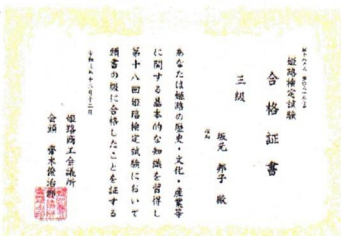 姫路検定試験
合格証書
三級
坂元 邦子 殿
あなたは姫路の歴史・文化・産業等
に関する基本的な知識を習得し
第十八回姫路検定試験において
頭書の級に合格したことを証する
姫路商工会議所
会頭 齋木俊治郎